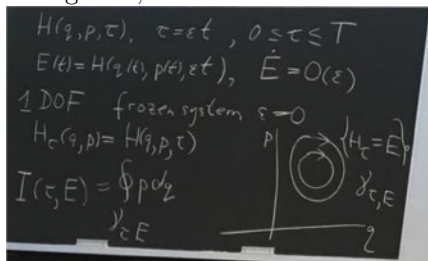 H(q,p,τ), τ=εt, 0≤τ≤T
E(t)=H(q(t),p(t),εt), Ė=O(ε)
1 DOF frozen system ε=0
H_τ(q,p)=H(q,p,τ)
I(τ,E)=∮pdq
γ_τE
p
{H_τ=E}
γ_τ,E
q